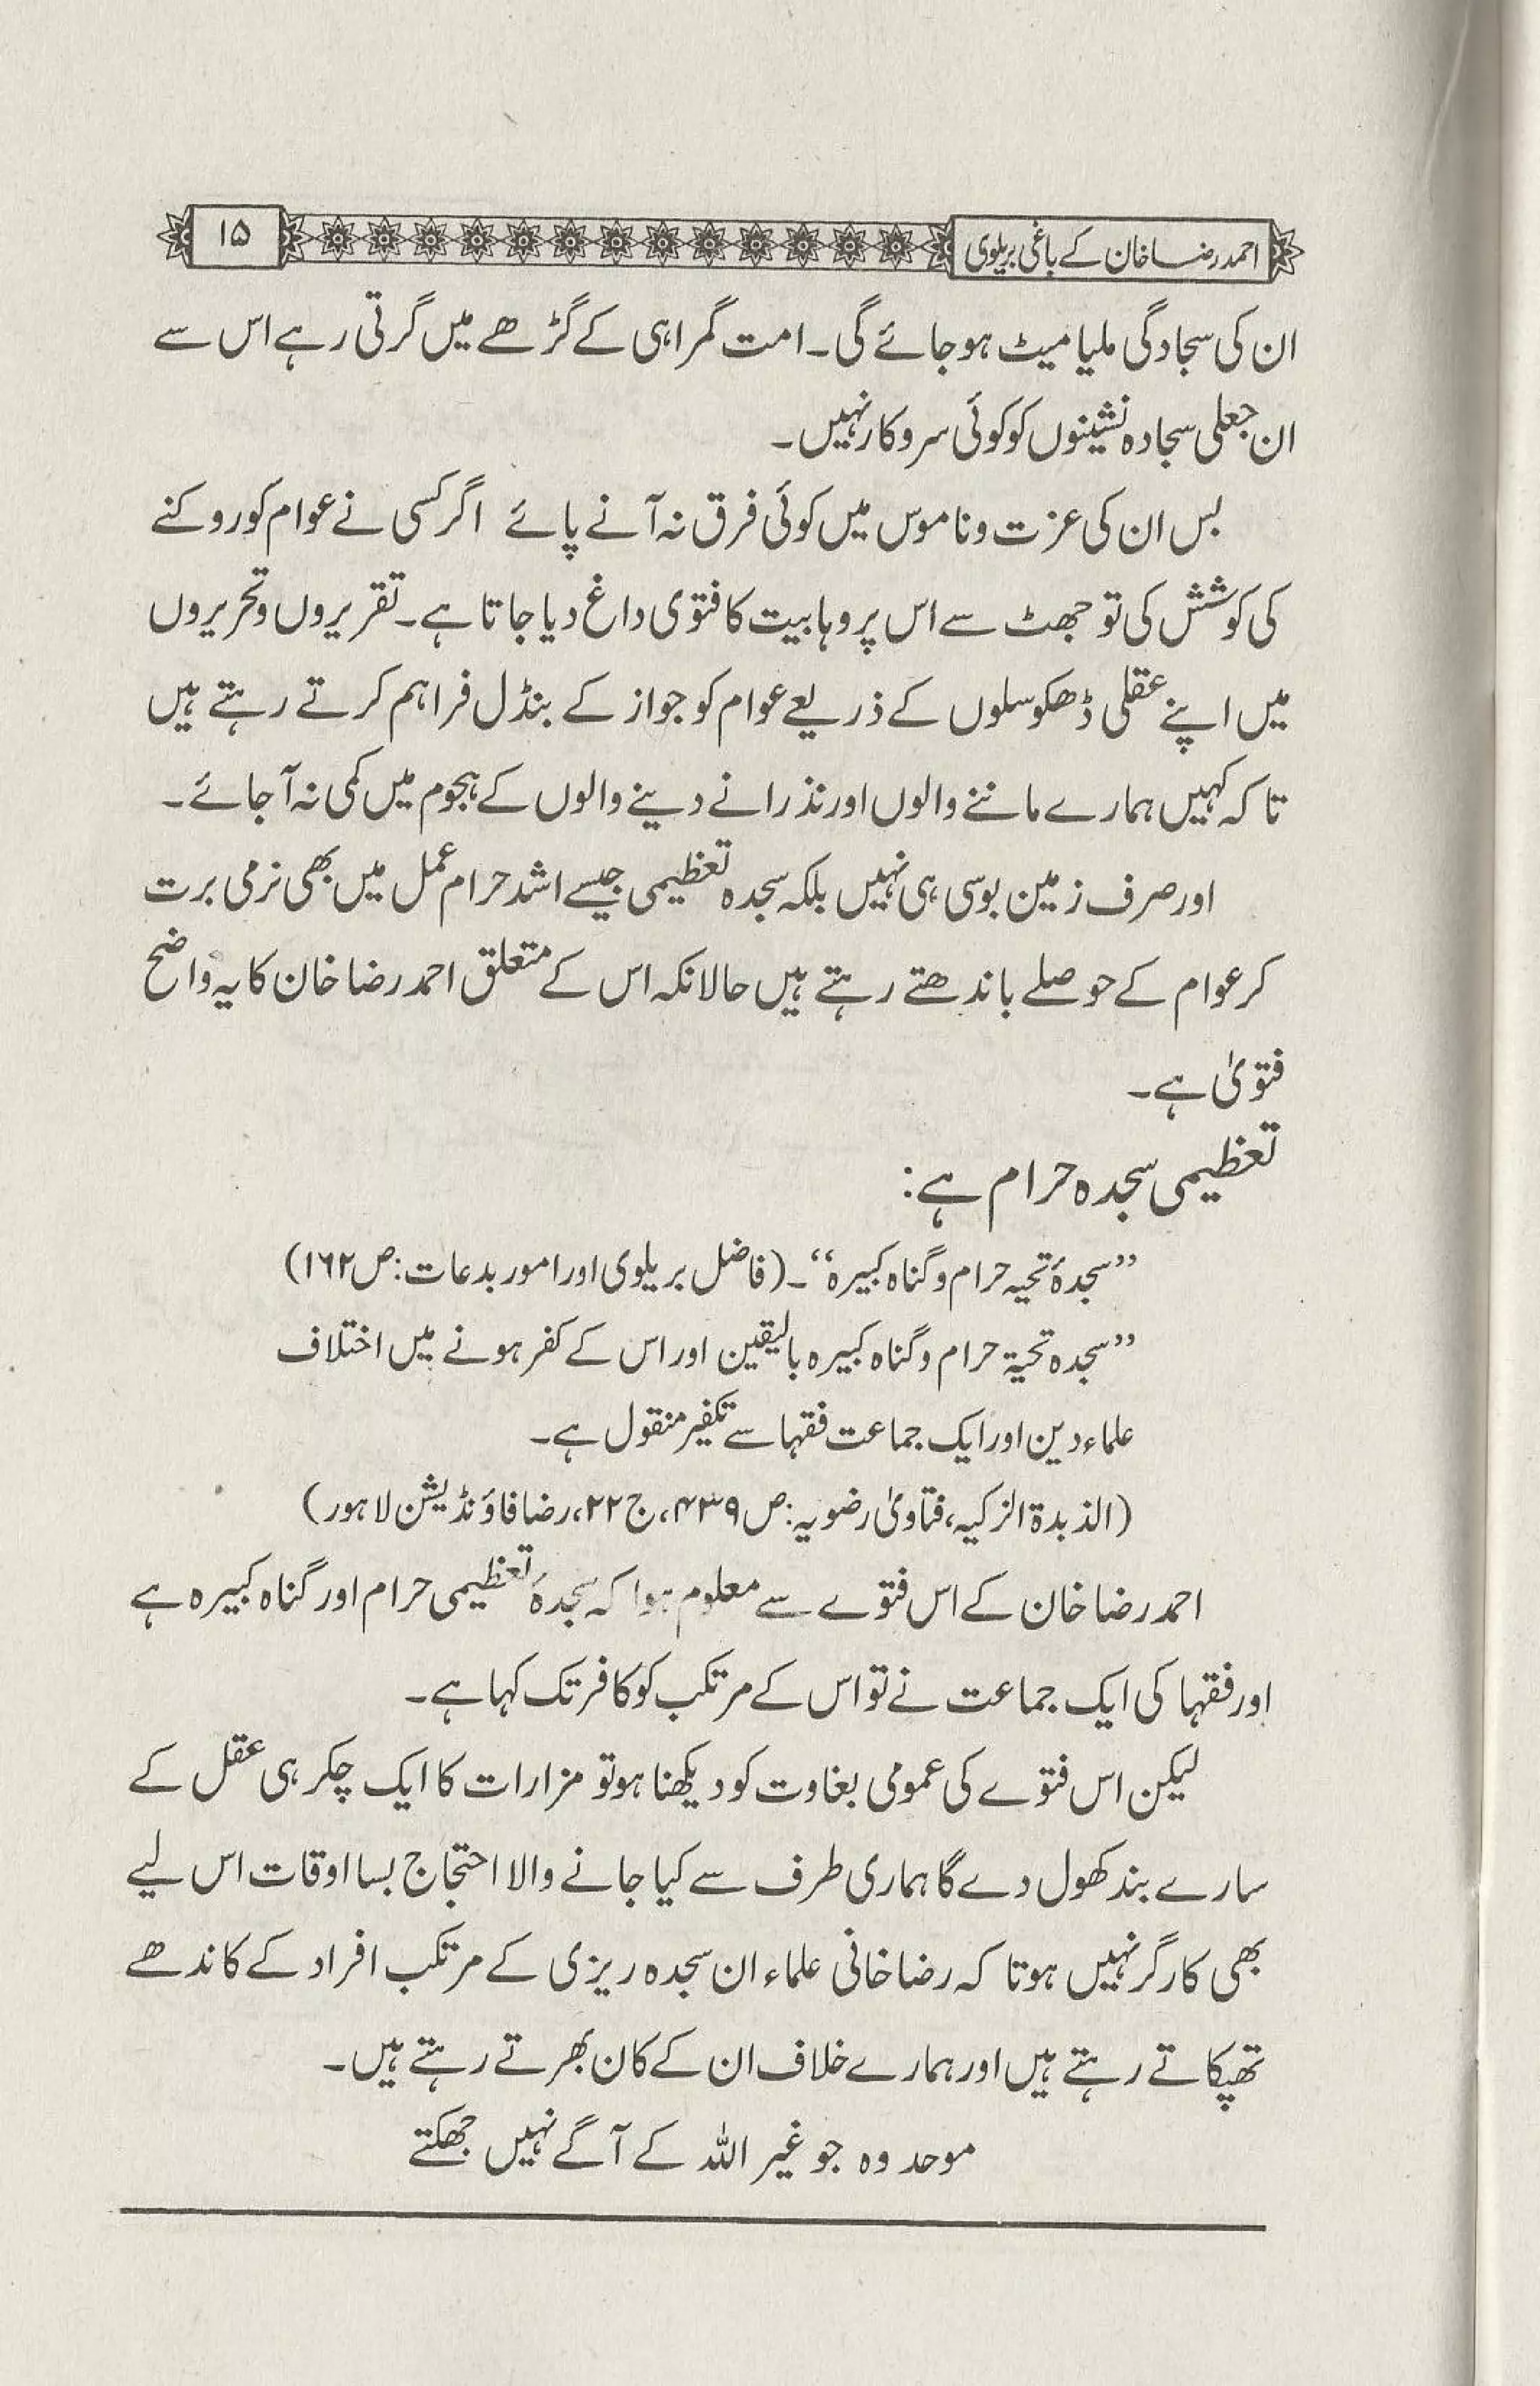 احمد رضا خان کے باغی بریلوی
۱۵
ان کی سجادگی ملیا میٹ ہو جائے گی۔ امت گمراہی کے گڑھے میں گرتی رہے اس سے
ان جعلی سجادہ نشینوں کو کوئی سروکار نہیں۔
بس ان کی عزت و ناموس میں کوئی فرق نہ آنے پائے اگر کسی نے عوام کو روکنے
کی کوشش کی تو جھٹ سے اس پر وہابیت کا فتوی داغ دیا جاتا ہے۔ تقریروں و تحریروں
میں اپنے عقلی ڈھکوسلوں کے ذریعے عوام کو جواز کے بنڈل فراہم کرتے رہتے ہیں
تاکہ کہیں ہمارے ماننے والوں اور نذرانے دینے والوں کے ہجوم میں کمی نہ آ جائے۔
اور صرف زمین بوسی ہی نہیں بلکہ سجدہ تعظیمی جیسے اشد حرام عمل میں بھی نرمی برت
کر عوام کے حوصلے باندھتے رہتے ہیں حالانکہ اس کے متعلق احمد رضا خان کا یہ واضح
فتویٰ ہے۔
تعظیمی سجدہ حرام ہے:
”سجدۂ تحیہ حرام و گناہ کبیرہ“۔ (فاضل بریلوی اور امور بدعات: ص ۱۶۲)
”سجدہ تحیۃ حرام و گناہ کبیرہ بالیقین اور اس کے کفر ہونے میں اختلاف
علماء دین اور ایک جماعت فقہا سے تکفیر منقول ہے۔
(الذبدۃ الزکیہ، فتاویٰ رضویہ: ص ۴۳۹، ج ۲۲، رضا فاؤنڈیشن لاہور)
احمد رضا خان کے اس فتوے سے معلوم ہوا کہ سجدۂ تعظیمی حرام اور گناہ کبیرہ ہے
اور فقہا کی ایک جماعت نے تو اس کے مرتکب کو کافر تک کہا ہے۔
لیکن اس فتوے کی عمومی بغاوت کو دیکھنا ہو تو مزارات کا ایک چکر ہی عقل کے
سارے بند کھول دے گا ہماری طرف سے کیا جانے والا احتجاج بسا اوقات اس لیے
بھی کارگر نہیں ہوتا کہ رضاخانی علماء ان سجدہ ریزی کے مرتکب افراد کے کاندھے
تھپکاتے رہتے ہیں اور ہمارے خلاف ان کے کان بھرتے رہتے ہیں۔
موحد وہ جو غیر اللہ کے آگے نہیں جھکتے